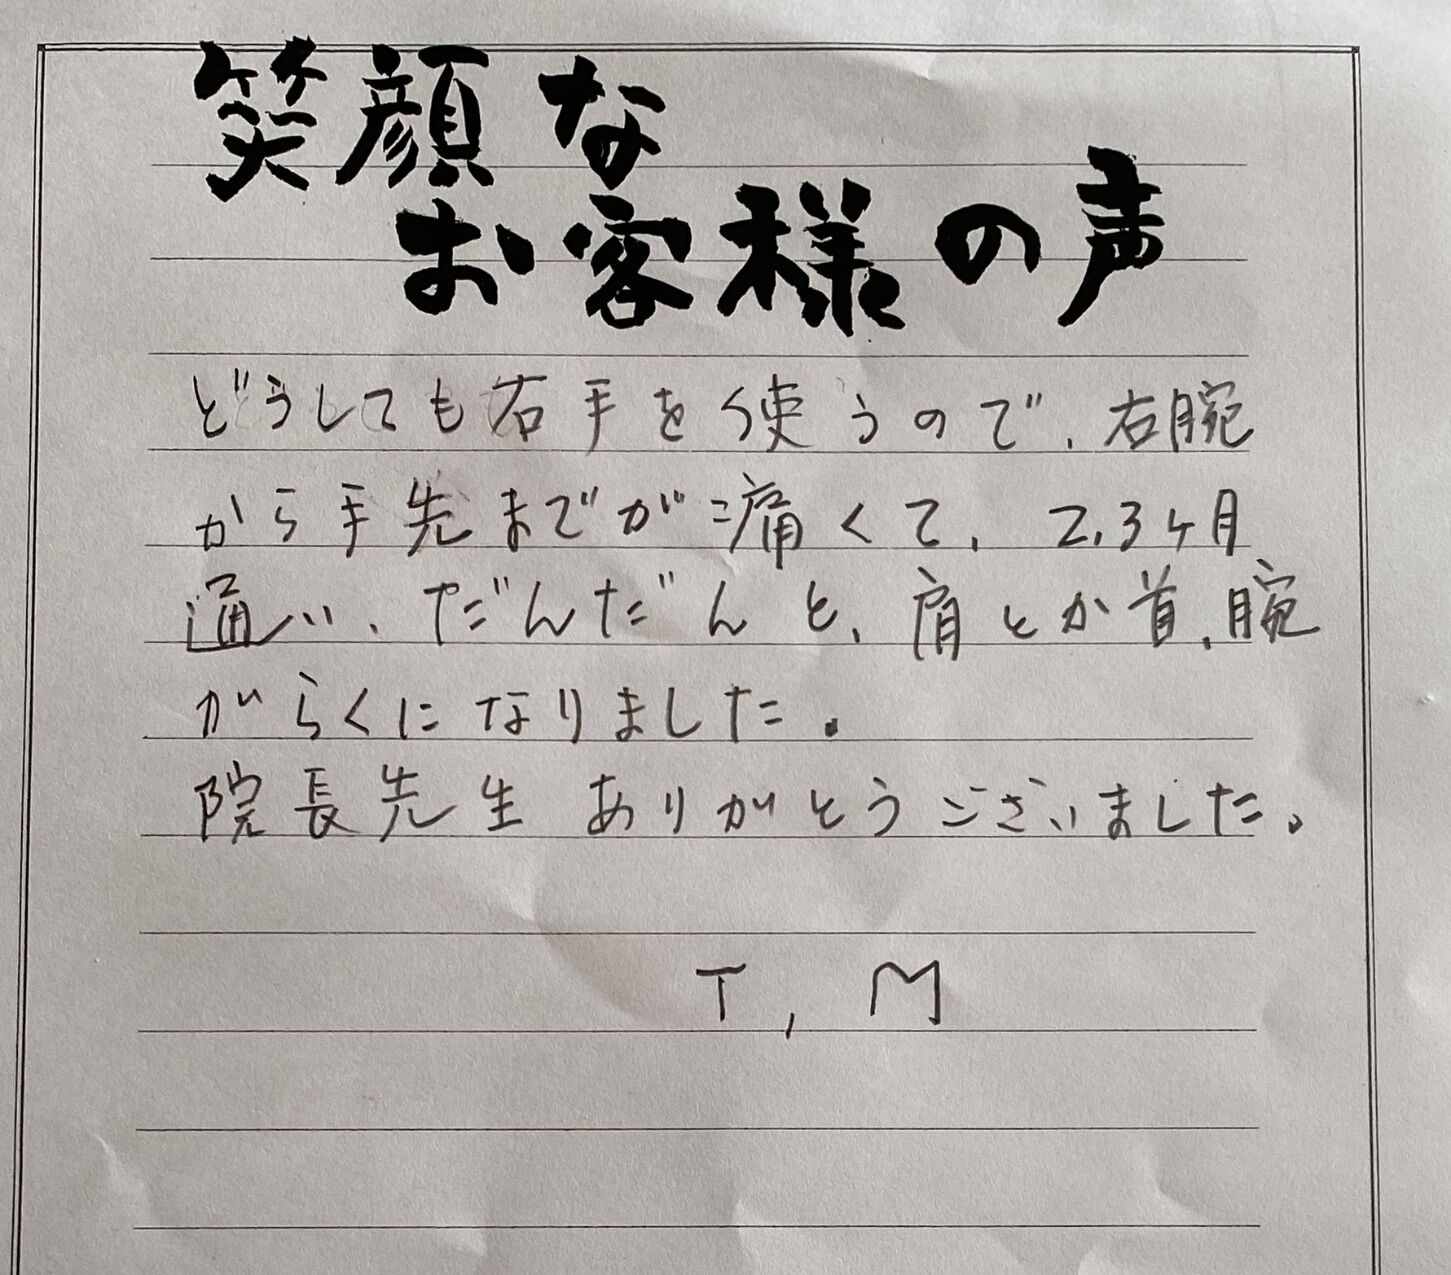 笑顔な
お客様の声
どうしても右手を使うので、右腕
から手先までが痛くて、2,3ヶ月
通い、だんだんと、肩とか首、腕
がらくになりました。
院長先生 ありがとうございました。
T, M